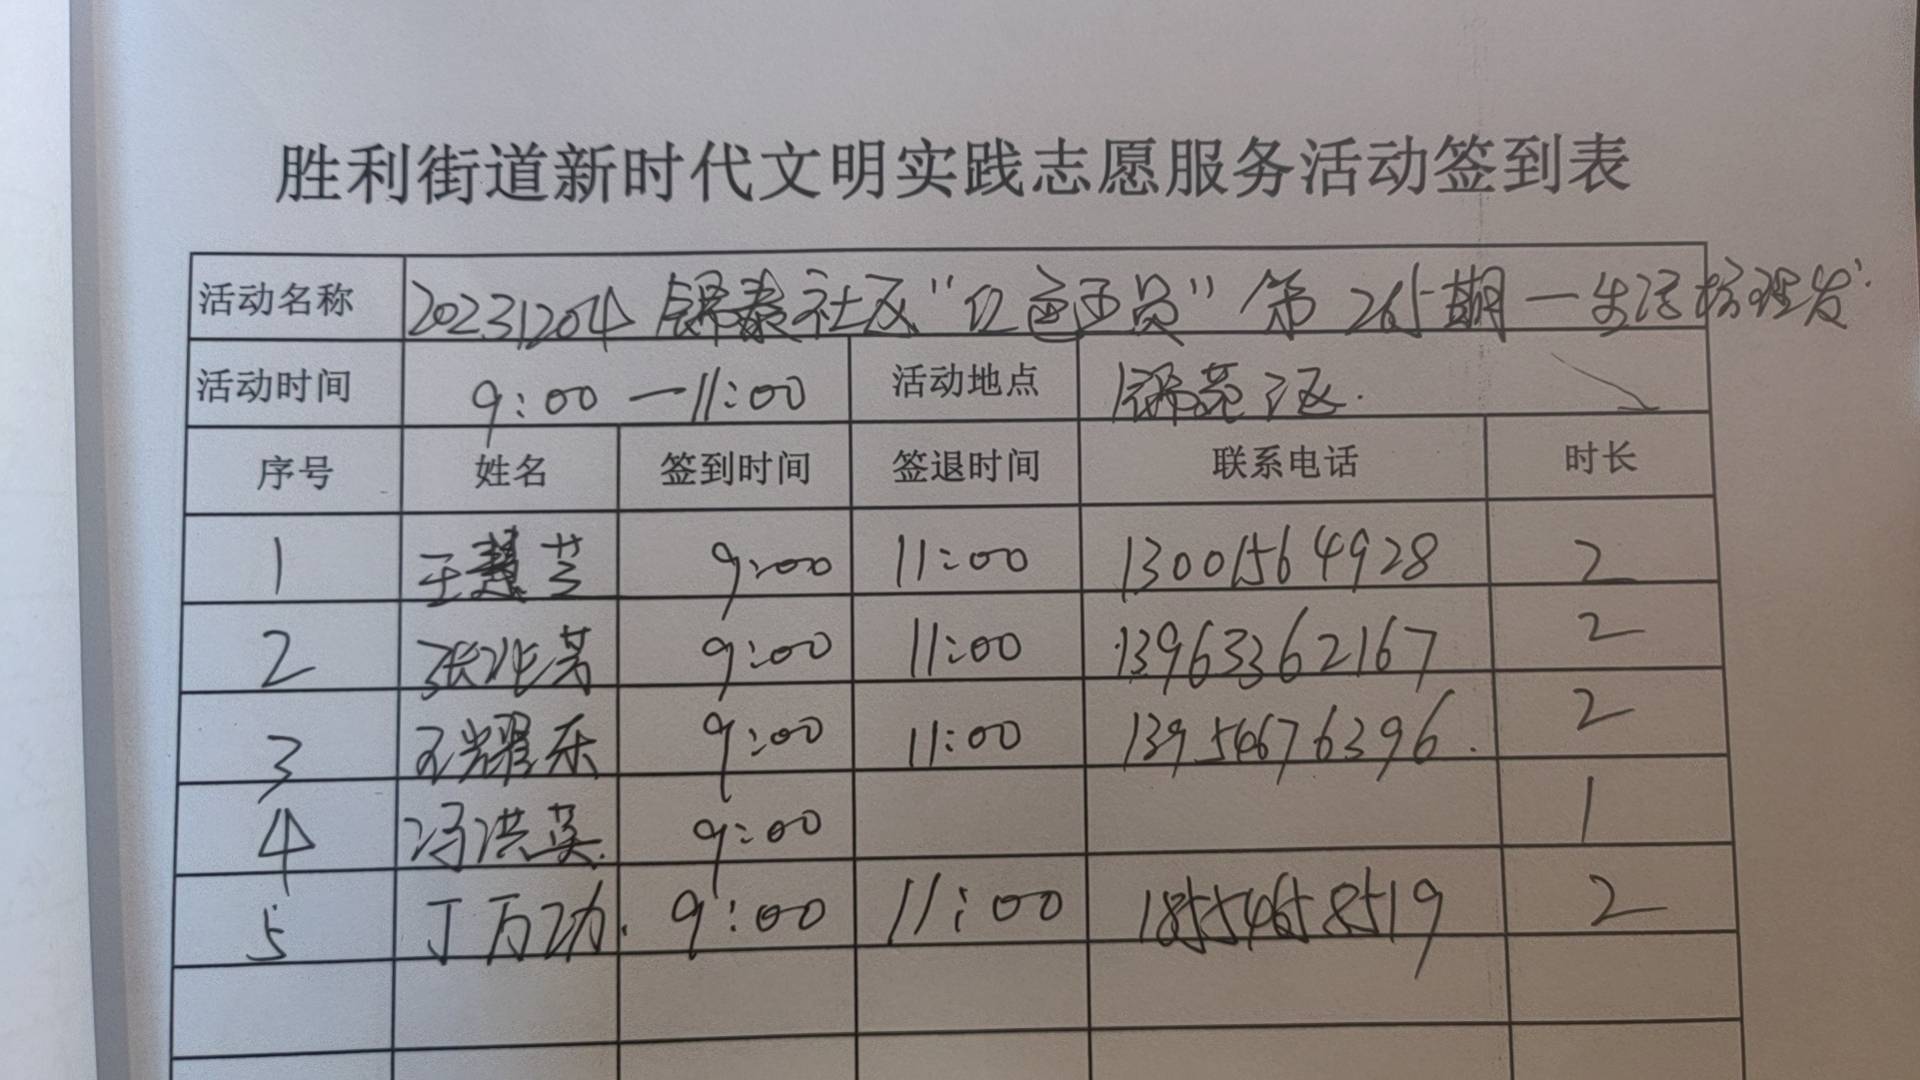 胜利街道新时代文明实践志愿服务活动签到表
活动名称 20231204 锦泰社区“红色正员”第265期一生活
活动时间 9:00—11:00 活动地点 锦苑
序号 姓名 签到时间 签退时间 联系电话 时长
1 王慧芸 9:00 11:00 13001564928 2
2 张兆芳 9:00 11:00 13963362167 2
3 王耀乐 9:00 11:00 13954676396. 2
4 冯洪英. 9:00 1
5 丁万功. 9:00 11:00 18554658519 2